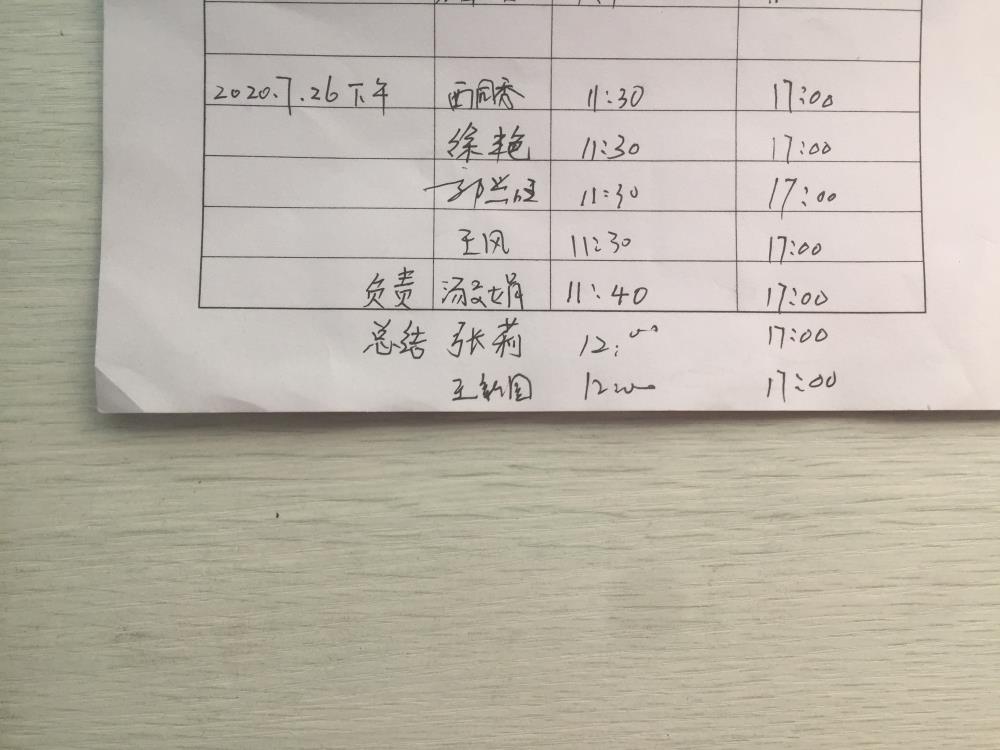 2020.7.26下午 西同秀 11:30 17:00
徐艳 11:30 17:00
11:30 17:00
王风 11:30 17:00
负责 汤文娟 11:40 17:00
总结 张莉 12:00 17:00
王新国 12:00 17:00